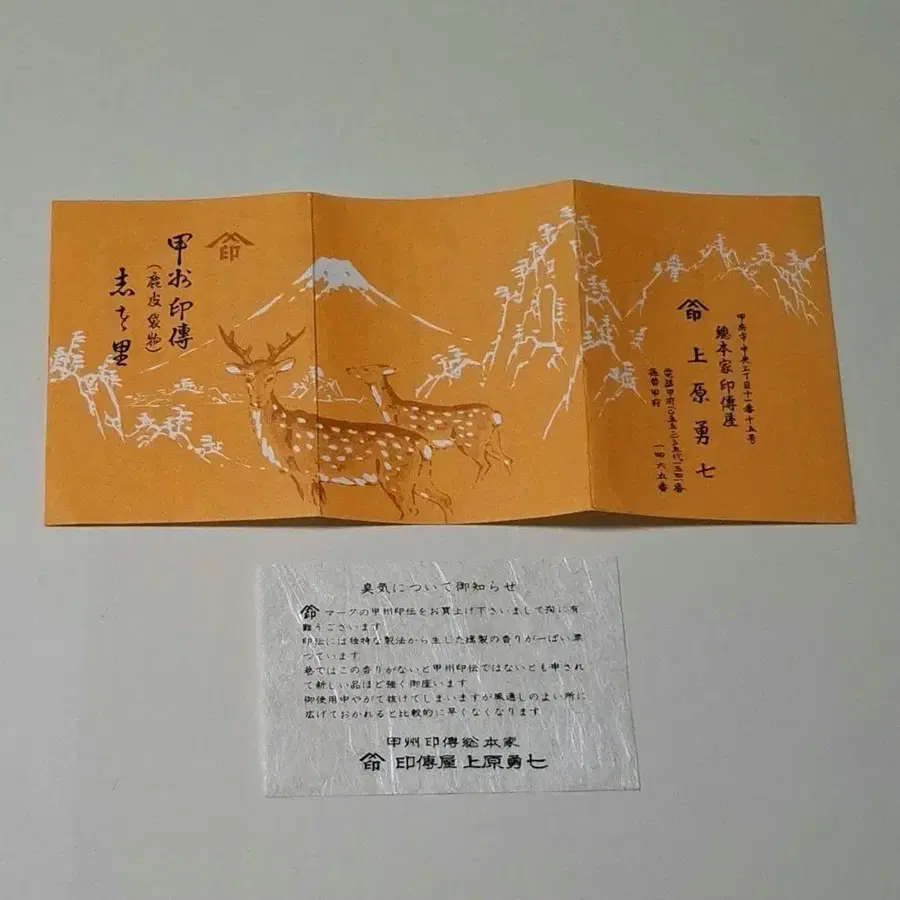 印
甲州印傳
(鹿皮袋物)
志を里
甲府市中央三丁目十一番十五号
總本家印傳屋
印
上原勇七
電話甲府
振替甲府 一四六五番
臭気について御知らせ
印マークの甲州印伝をお買上げ下さいまして洵に有
難うございます
印伝には独特な製法から生じた燻製の香りが一ぱい漂
っています
巷ではこの香りがないと甲州印伝ではないとも申され
て新しい品ほど強く御座います
御使用中やがて抜けてしまいますが風通しのよい所に
広げておかれると比較的に早くなくなります
甲州印傳総本家
印 印傳屋上原勇七